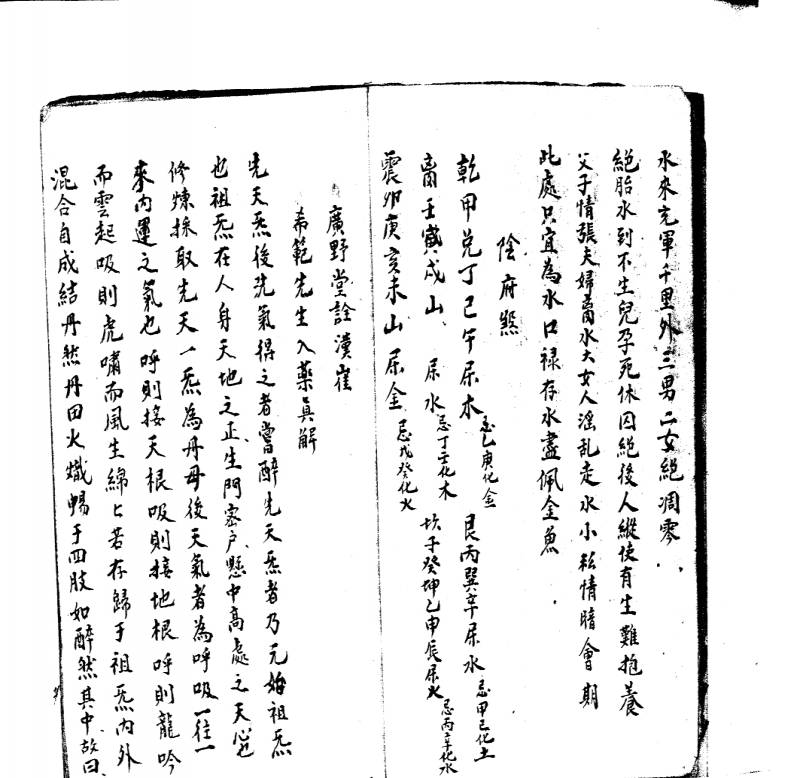 水來充軍千里外三男二女絕凋零
絕胎水到不生兒孕死休囚絕後人縱使有生難抱養
父子情張夫婦蓄水大女人淫乱走水小私情暗會期
此處只宜為水口祿存水盡佩金魚
陰府煞
乾甲兌丁己午屎木 忌乙庚化金 艮丙巽辛屎水 忌甲己化土
离壬寅戌山屎水 忌丁壬化木 坎子癸坤乙申辰屎火 忌丙辛化水
震卯庚亥未山屎金 忌戊癸化火
廣野堂詮 崔
希範先生入藥真解
先天炁後天氣得之者嘗醉先天炁者乃元始祖炁
也祖炁在人身天地之正生門密户懸中高處之天心
修煉採取先天一炁為丹母後天氣者為呼吸一往一
來內運之氣也呼則接天根吸則接地根呼則龍吟
而雲起吸則虎嘯而風生綿乚若存歸于祖炁內外
混合自成結丹然丹田火熾暢于四肢如醉然其中故曰